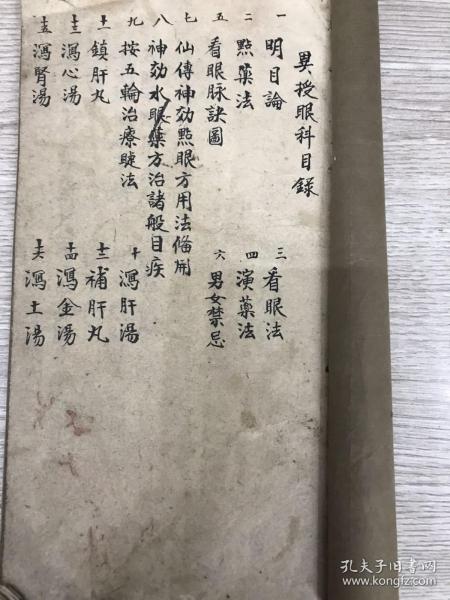 異授眼科目録
一 明目論
三 看眼法
二 點藥法
四 演藥法
五 看眼脉訣圖
六 男女禁忌
七 仙傳神効點眼方用法俻用
八 神効水眼藥方治諸般目疾
九 按五輪治療睫法
十 瀉肝湯
十一 鎮肝丸
十二 補肝丸
十三 瀉心湯
十四 瀉金湯
十五 瀉腎湯
十六 瀉土湯
孔夫子旧书网
www.kongfz.com